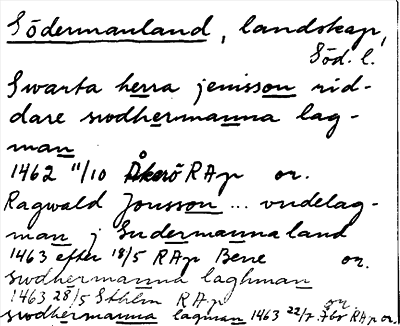 Södermanland, landskap,
Söd. l.
Swarta herra jenisson rid-
dare swdhermanna lag-
man
1462 11/10 Åkerö RAp or.
Ragwald Jonsson ... vndelag-
man j Sudermannaland
1463 efter 18/5 RAp Bene or.
swdhermanna laghman
1463 28/5 Sthlm RAp or.
swdhermanna lagman 1463 22/7 RAp or.